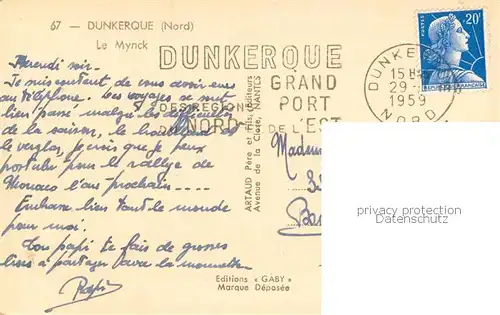 67 — DUNKERQUE (Nord)
Le Mynck
DUNKERQUE
GRAND
PORT
DES REGIONS
DU NORD & DE L'EST
DUNKERQUE
15H
29 -
1959
NORD
POSTES
20F
REPUBLIQUE FRANÇAISE
Mercredi soir -
Je suis content de vous avoir eues
au téléphone. Les voyages se sont
bien passé malgré les difficultés
de la saison, le brouillard et
le verglas, je crois que je peux
postuler pour le rallye de
Monaco l'an prochain ----
Embrasse bien tout le monde
pour moi.
Ton papi te fais de grosses
bises à partager avec la mounette
Papi
ARTAUD Père et Fils, Editeurs
Avenue de la Close, NANTES
Editions « GABY »
Marque Déposée
privacy protection
Datenschutz